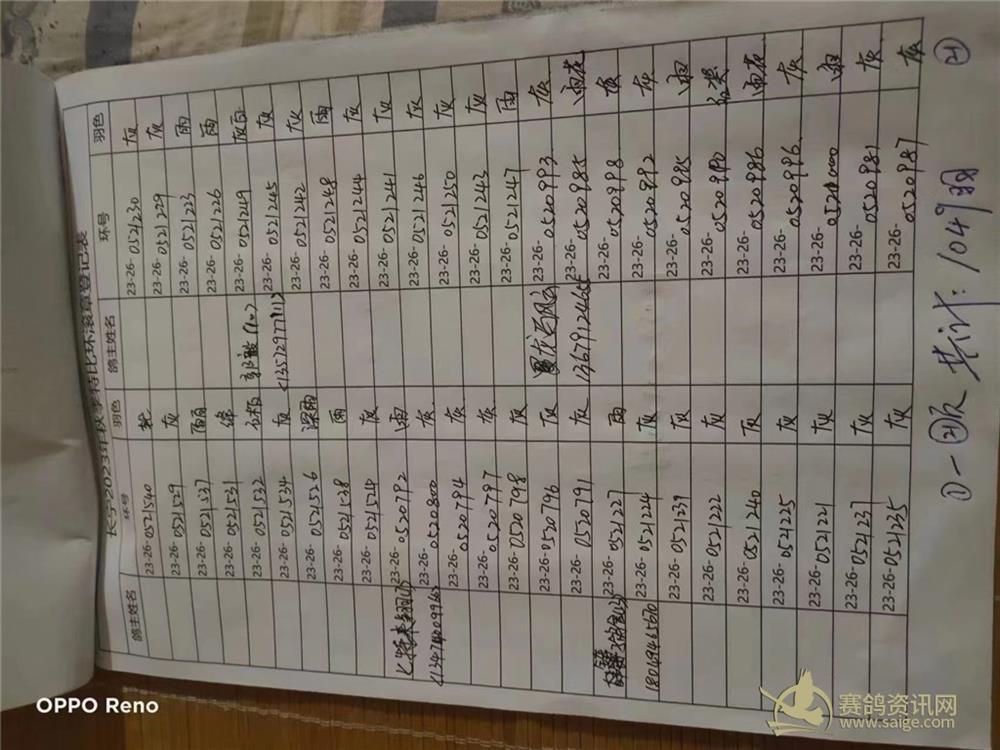 长宁2023年秋季特比环滚章登记表
鸽主姓名 环号 羽色 鸽主姓名 环号 羽色
23-26-0521540 23-26-0521230 灰
23-26-0521529 灰 23-26-0521229 灰
23-26-0521537 23-26-0521223 雨
23-26-0521531 绛 23-26-0521226 雨
23-26-0521532 23-26-0521249 灰白
23-26-0521534 灰 23-26-0521245 灰
23-26-0521526 深雨 23-26-0521242 灰
23-26-0521528 雨 23-26-0521248 雨
23-26-0521524 灰 23-26-0521244 灰
23-26-0520792 雨 23-26-0521241 灰
23-26-0520800 灰 23-26-0521246 灰
23-26-0520794 灰 23-26-0521250 灰
23-26-0520797 灰 23-26-0521243 灰
23-26-0520798 灰 23-26-0521247 雨
23-26-0520796 灰 23-26-0520993 灰
23-26-0520791 灰 1367912465 23-26-0520985 雨花
23-26-0521227 雨 23-26-0520998 灰
18049465670 23-26-0521224 灰 23-26-0520992 灰
23-26-0521239 灰 23-26-0520985
23-26-0521222 灰 23-26-0520990
23-26-0521240 灰 23-26-0520986 雨花
23-26-0521225 灰 23-26-0520996 灰
23-26-0521221 灰 23-26-0521000
23-26-0521237 灰 23-26-0520981 灰
23-26-0521235 灰 23-26-0520987 灰
①-㉑页 共计:1049羽
㉑
OPPO Reno
赛鸽资讯网
www.saige.com